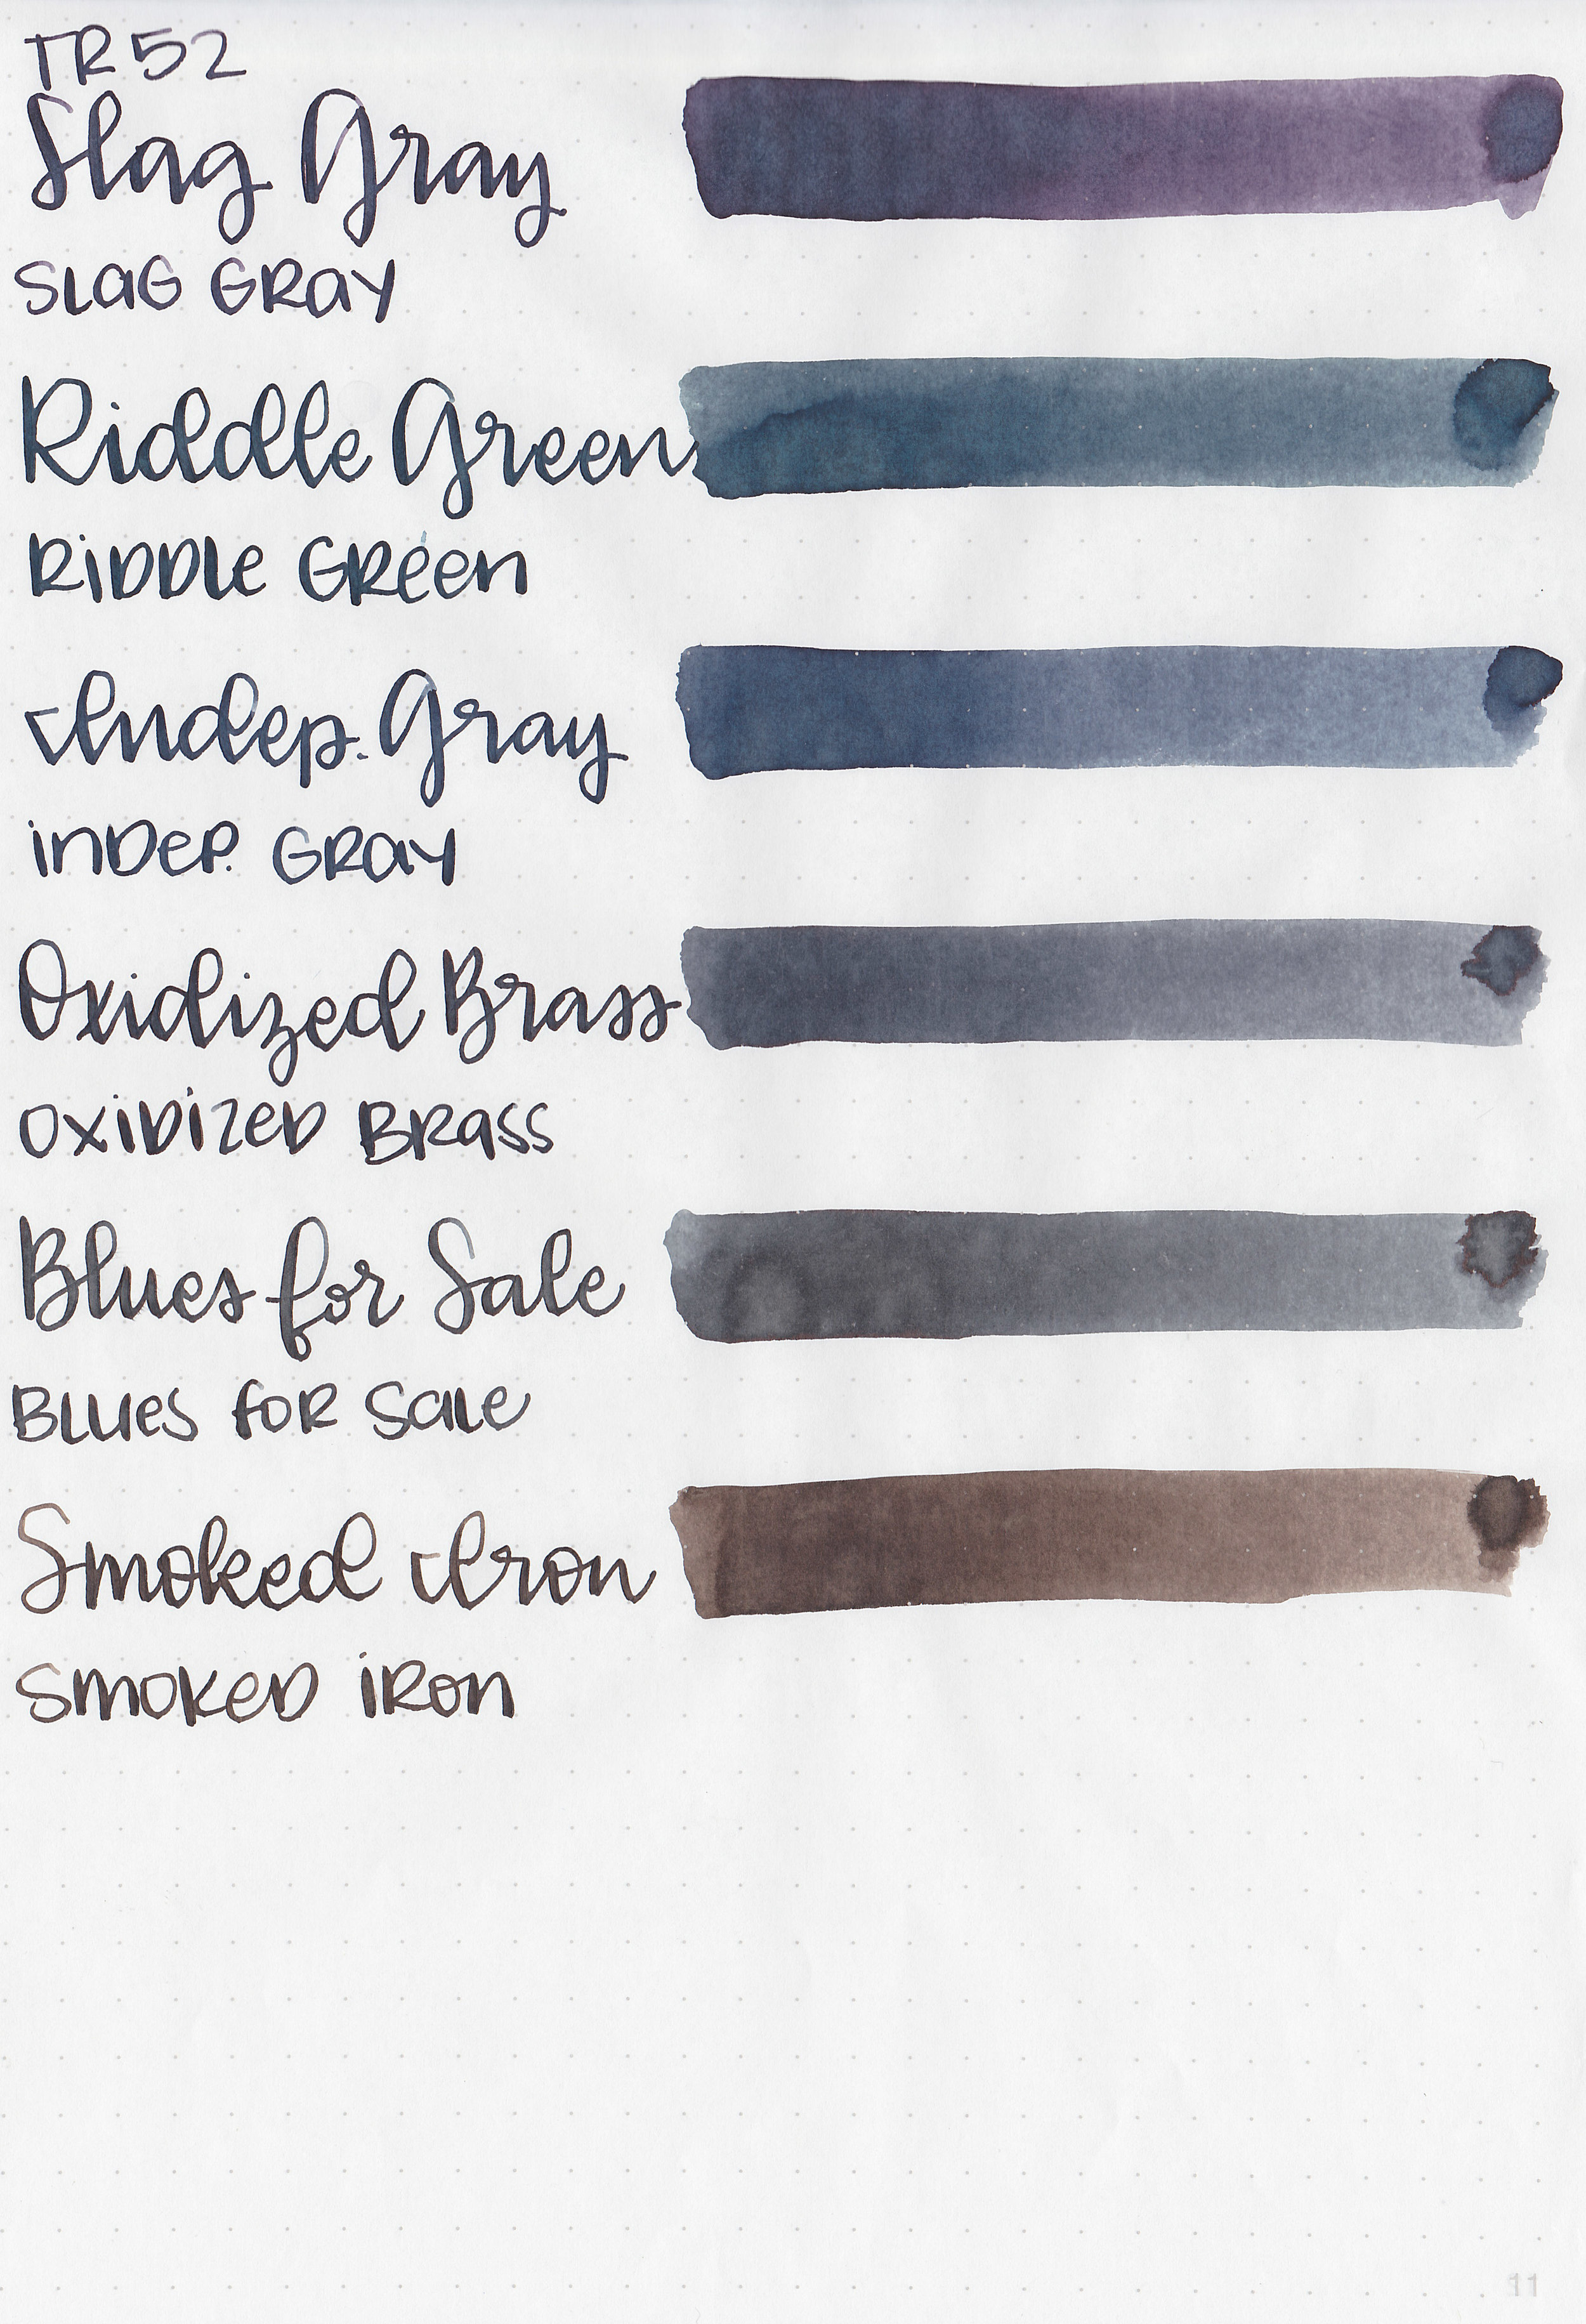 TR 52
Slag Gray
SLAG GRAY
Riddle Green
RIDDLE GREEN
Indep. Gray
INDEP. GRAY
Oxidized Brass
OXIDIZED BRASS
Blues for Sale
BLUES FOR SALE
Smoked Iron
SMOKED IRON
11